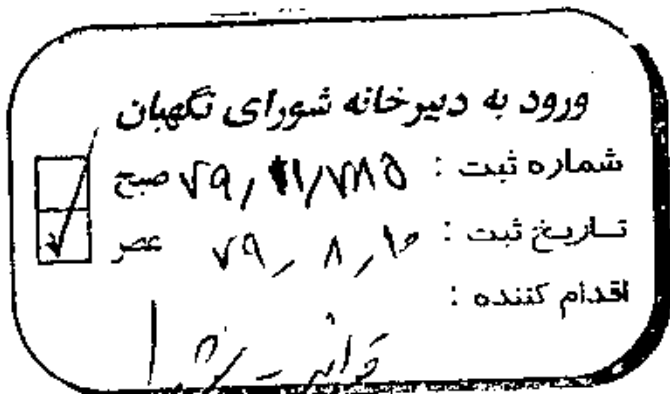 ورود به دبیرخانه شورای نگهبان
شماره ثبت : ۷۹/۲۱/۷۸۵ صبح
تاریخ ثبت : ۷۹/۸/۱۰ عصر
اقدام کننده :